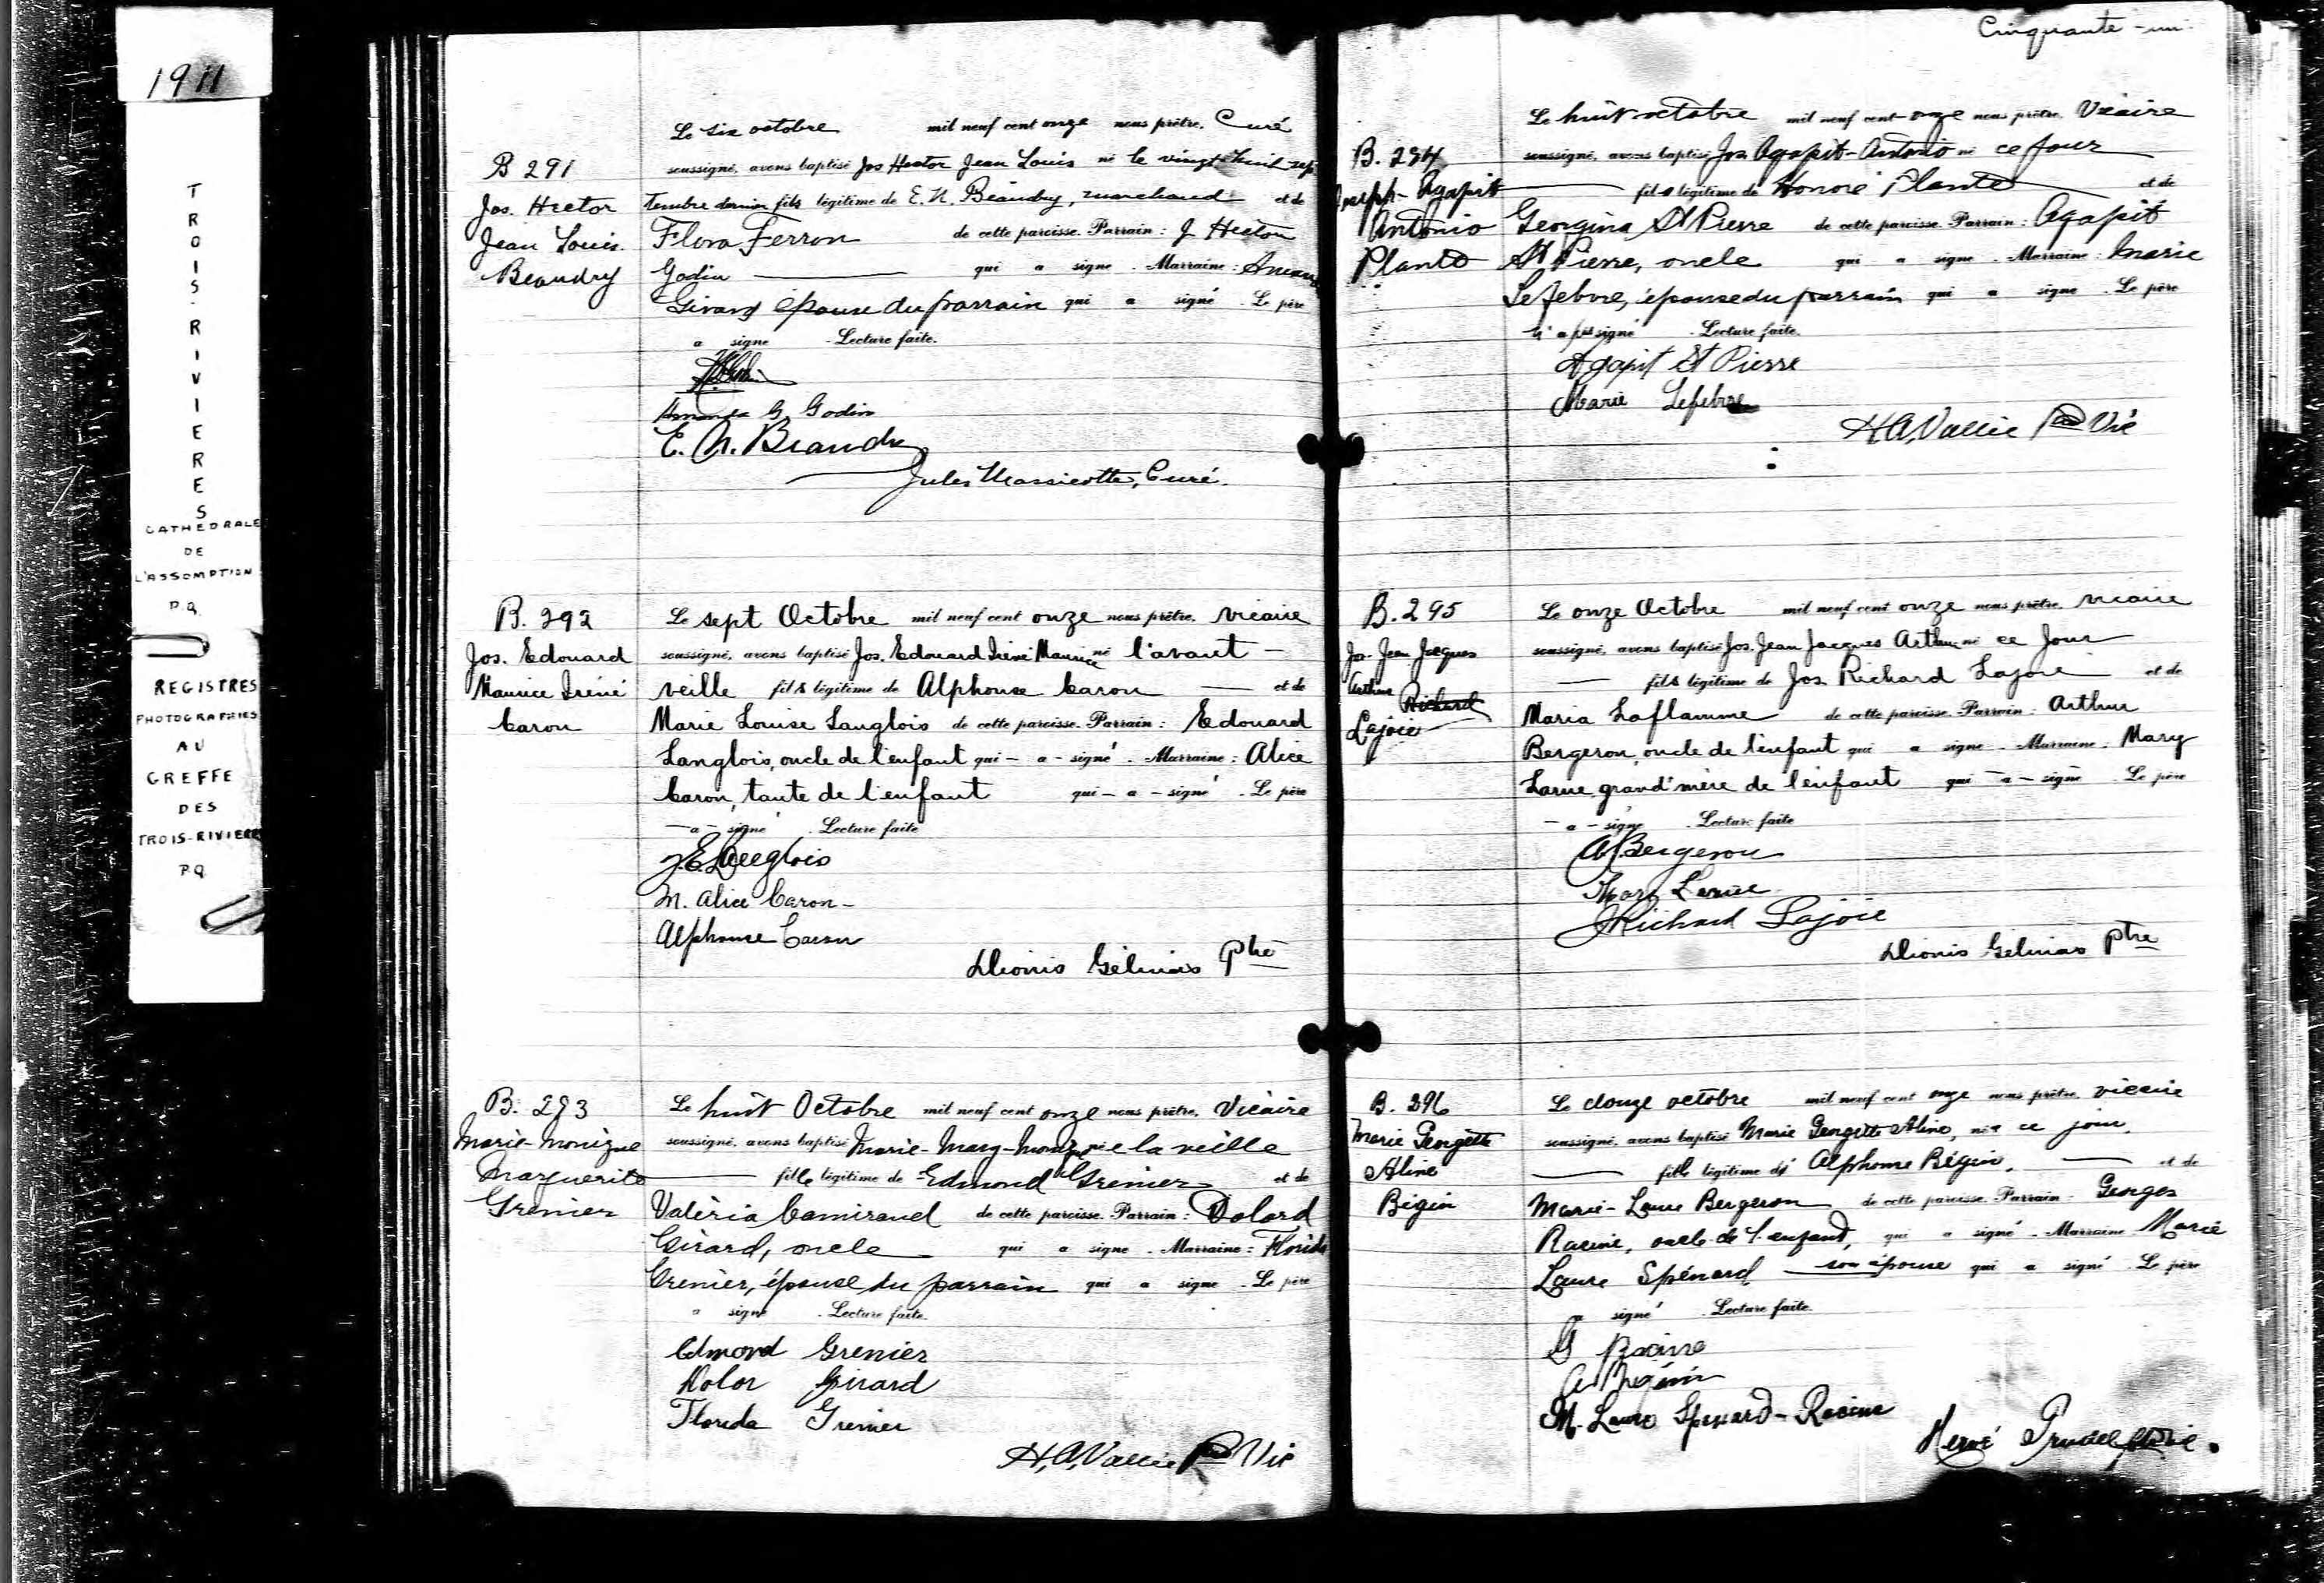 1911
TROIS-RIVIERES
CATHEDRALE
DE
L'ASSOMPTION
P.Q.
REGISTRES
PHOTOGRAPHIES
AU
GREFFE
DES
TROIS-RIVIERES
P.Q.
B 291
Jos. Hector
Jean Louis
Beaudry
Le six octobre mil neuf cent onze nous prêtre, Curé
soussigné, avons baptisé Jos Hector Jean Louis né le vingt huit sep
tembre dernier fils légitime de E. N. Beaudry, marchand et de
Flora Ferron de cette paroisse. Parrain : J Hector
Godin qui a signé. Marraine :
Girard épouse du parrain qui a signé. Le père
a signé. Lecture faite.
G. Godin
E. N. Beaudry
Jules Massicotte, Curé.
B. 292
Jos. Edouard
Maurice Iréné
Caron
Le sept Octobre mil neuf cent onze nous prêtre, vicaire
soussigné, avons baptisé Jos. Edouard Iréné Maurice né l'avant-
veille fils légitime de Alphonse Caron et de
Marie Louise Langlois de cette paroisse. Parrain : Edouard
Langlois, oncle de l'enfant qui - a - signé. Marraine : Alice
Caron, tante de l'enfant qui - a - signé. Le père
- a - signé. Lecture faite
J. E. Langlois
M. Alice Caron -
Alphonse Caron
Dionis Gélinas Ptre
B. 293
Marie-Monique
Marguerite
Grenier
Le huit Octobre mil neuf cent onze nous prêtre, Vicaire
soussigné, avons baptisé Marie-Marg-Monique née la veille
fille légitime de Edmond Grenier et de
Valéria Camirand de cette paroisse. Parrain : Dolard
Girard, oncle qui a signé. Marraine : Florida
Grenier, épouse du parrain qui a signé. Le père
a signé. Lecture faite.
Edmond Grenier
Dolor Girard
Florida Grenier
H. A. Vallée Ptre Vic
Cinquante-un
B. 294
Joseph-Agapit
Antonio
Plante
Le huit octobre mil neuf cent onze nous prêtre, Vicaire
soussigné, avons baptisé Jos. Agapit-Antonio né ce jour
fils légitime de Honoré Plante et de
Georgina St Pierre de cette paroisse. Parrain : Agapit
St Pierre, oncle qui a signé. Marraine : Marie
Lefebvre, épouse du parrain qui a signé. Le père
n'a pas signé. Lecture faite.
Agapit St Pierre
Marie Lefebvre
H A, Vallée Ptre Vic
B. 295
Jos. Jean Jacques
Arthur Richard
Lajoie
Le onze Octobre mil neuf cent onze nous prêtre, vicaire
soussigné, avons baptisé Jos. Jean Jacques Arthur né ce jour
fils légitime de Jos. Richard Lajoie et de
Maria Laflamme de cette paroisse. Parrain : Arthur
Bergeron, oncle de l'enfant qui a signé. Marraine : Mary
Larue grand'mère de l'enfant qui - a - signé. Le père
- a - signé. Lecture faite
A Bergeron
Mary Larue
J Richard Lajoie
Dionis Gélinas Ptre
B. 296
Marie Georgette
Aline
Bégin
Le douze octobre mil neuf cent onze nous prêtre, vicaire
soussigné, avons baptisé Marie Georgette Aline, née ce jour,
fille légitime de Alphonse Bégin, et de
Marie-Laure Bergeron de cette paroisse. Parrain : Georges
Racine, oncle de l'enfant, qui a signé. Marraine Marie
Laure Spénard son épouse qui a signé. Le père
a signé. Lecture faite.
G Racine
A Bégin
M. Laure Spénard - Racine
Hervé Trudel ptre vic.